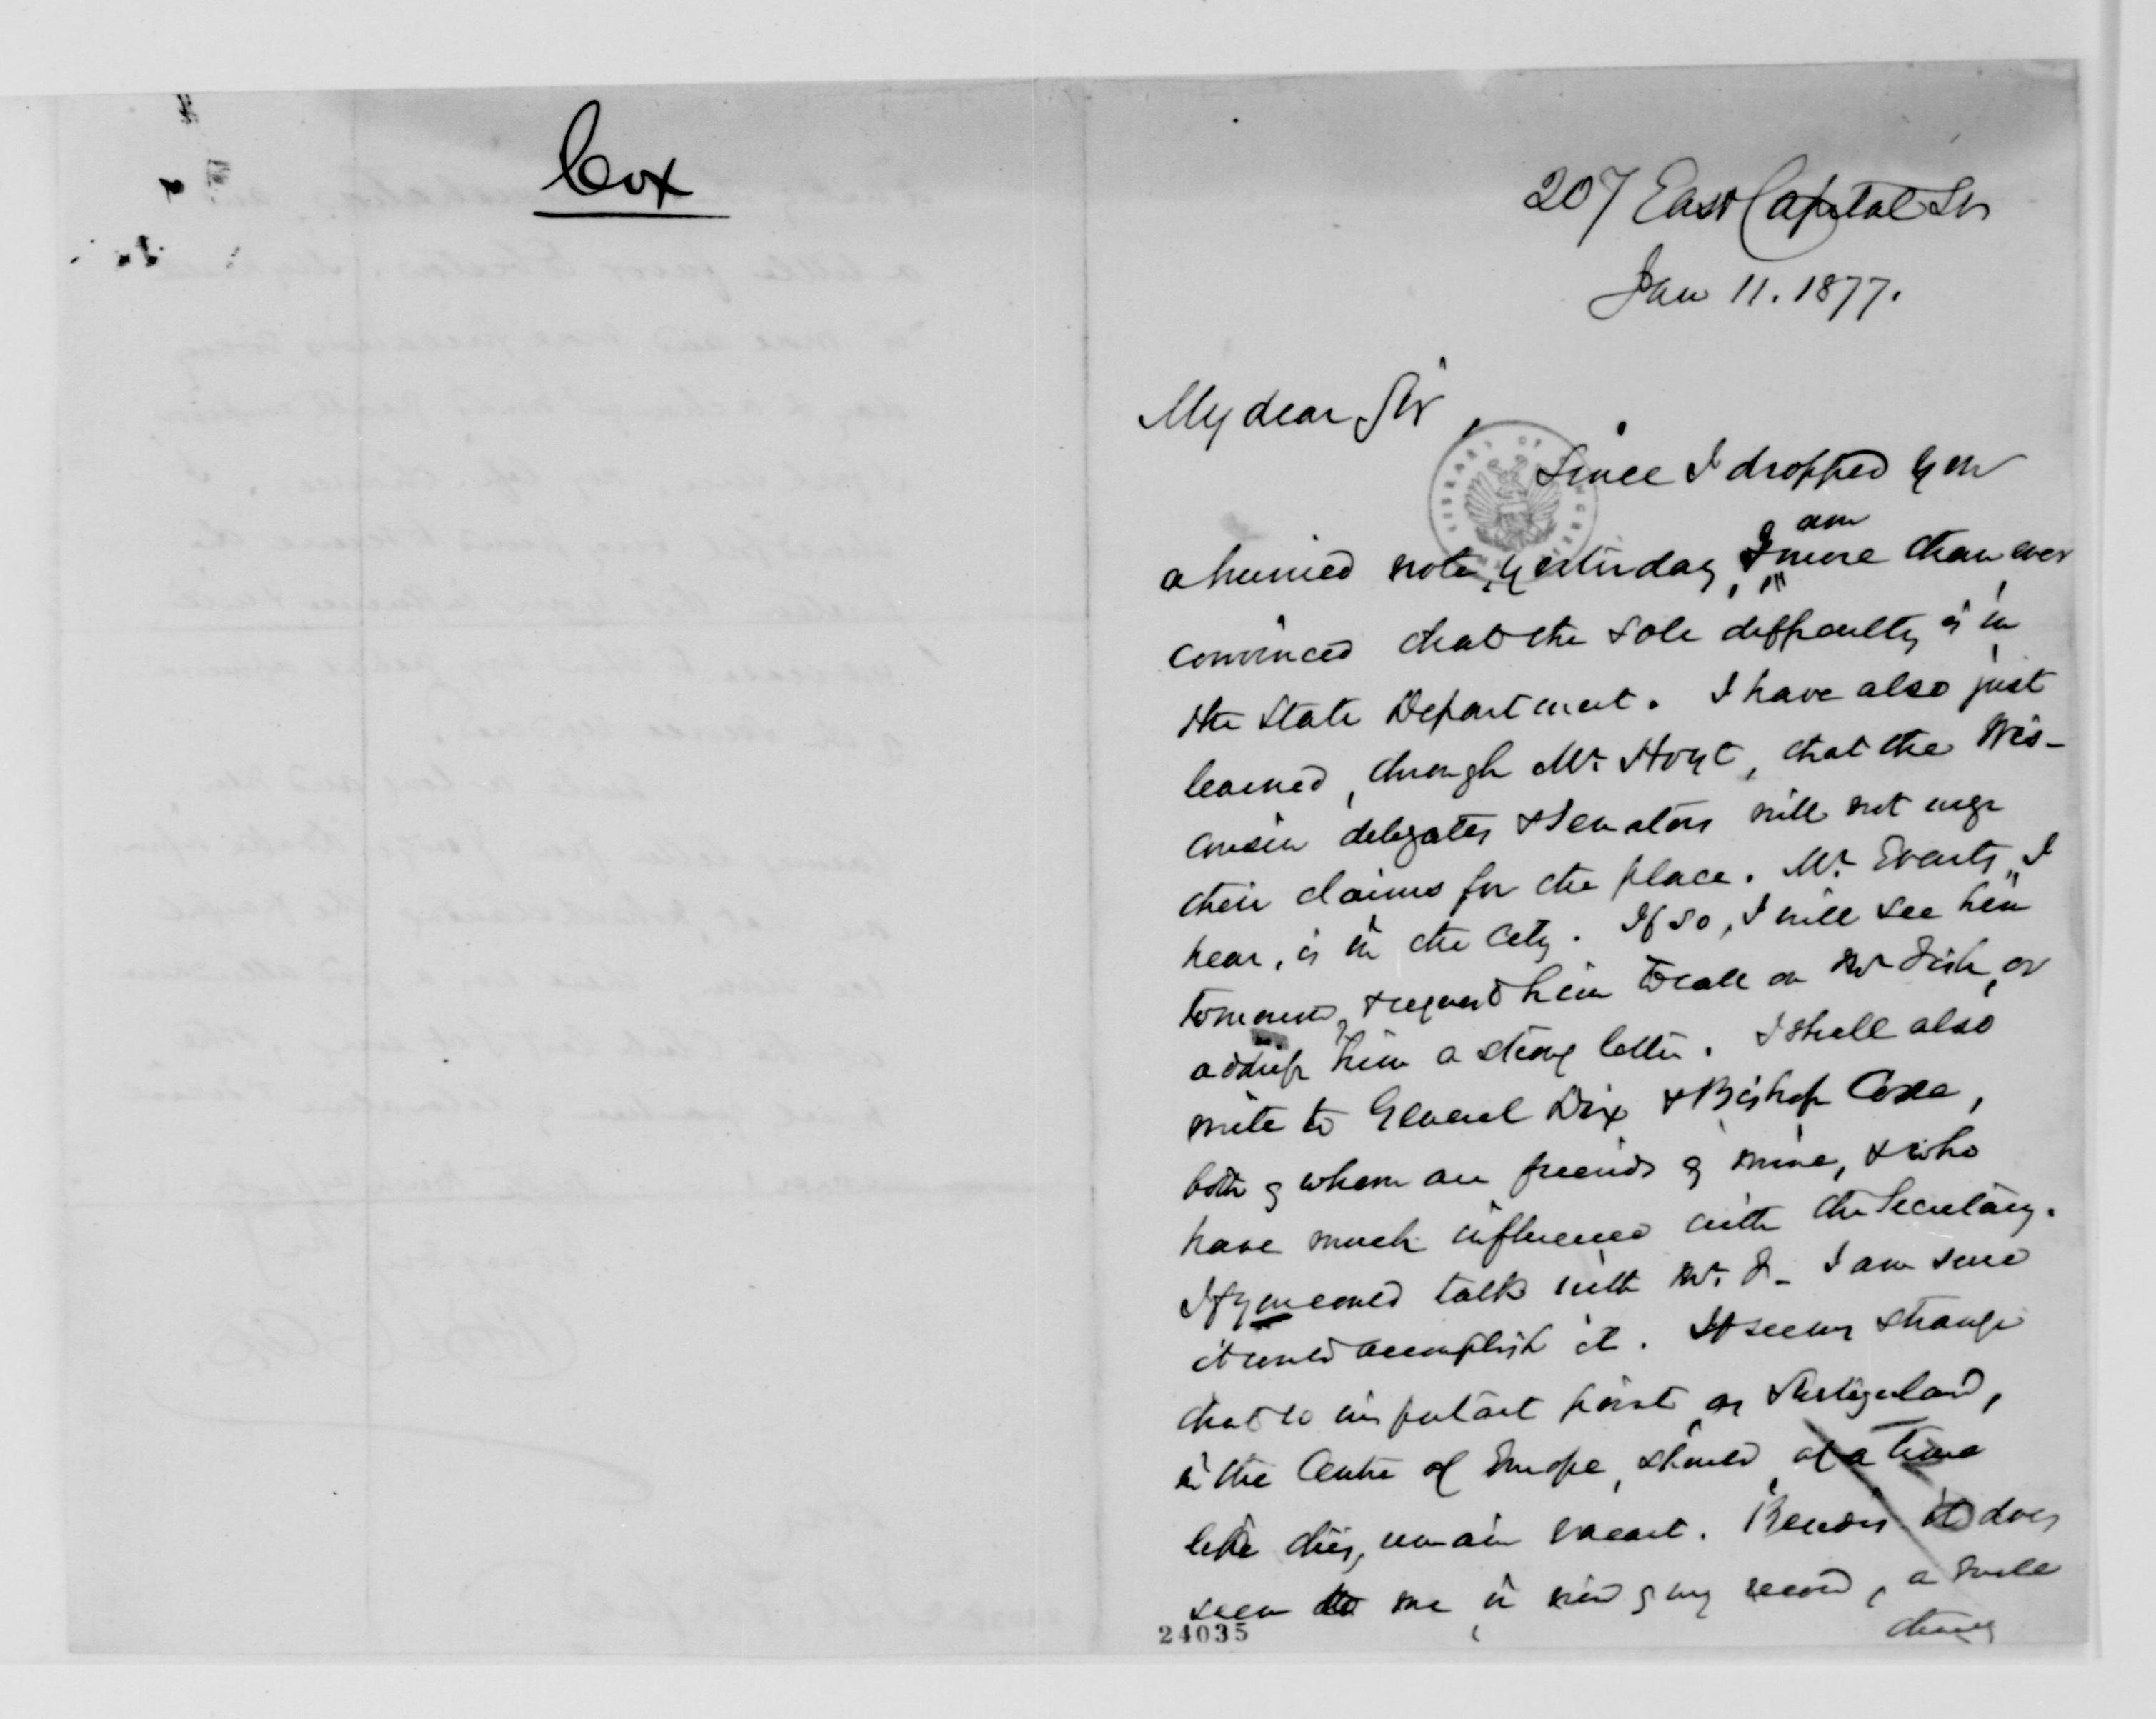 Cox
207 East Capital St
Jan 11. 1877.
My dear Sir,
LIBRARY OF CONGRESS
Since I dropped you
a hurried note, yesterday, I am more than ever
convinced that the sole difficulty is in
the State Department. I have also just
learned, through Mr. Hoyt, that the Wis-
consin delegates & Senators will not urge
their claims for the place. Mr. Evarts, I
hear, is in the City. If so, I will see him
tomorrow, & request him to call on Mr Fish, or
address him a strong letter. I shall also
write to General Dix & Bishop Coxe,
both of whom are friends of mine, & who
have much influence with the Secretary.
If you could talk with Mr. F- I am sure
it would accomplish it. It seems strange
that so important point as Switzerland,
in the Centre of Europe, should, at a time
like this, remain vacant. Besides it does
seem to me in view of my record, a small
thing
24035